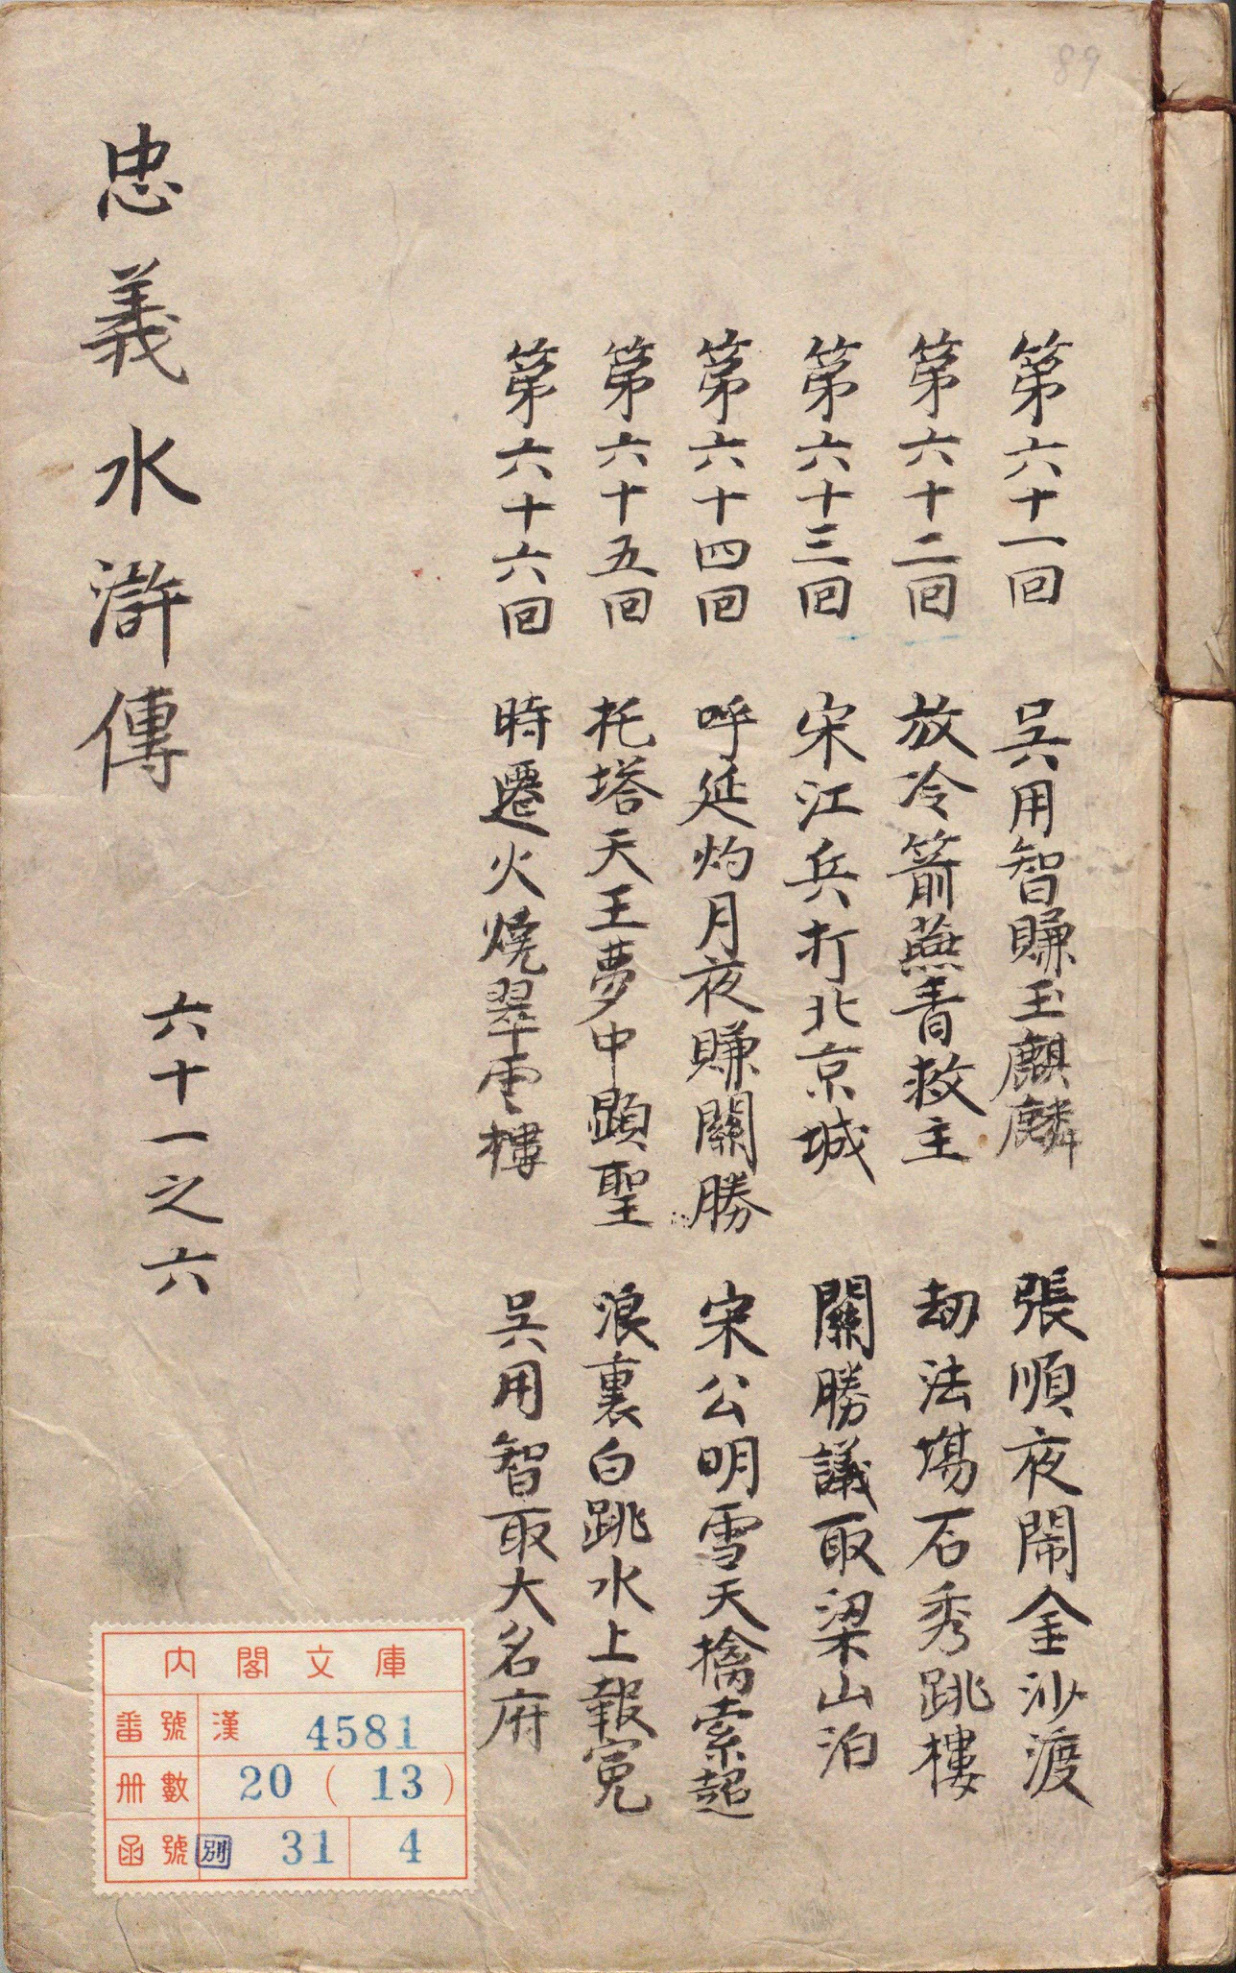 89
第六十一回 吳用智賺玉麒麟 張順夜鬧金沙渡
第六十二回 放冷箭燕青救主 劫法場石秀跳樓
第六十三回 宋江兵打北京城 關勝議取梁山泊
第六十四回 呼延灼月夜賺關勝 宋公明雪天擒索超
第六十五回 托塔天王夢中顕聖 浪裏白跳水上報寃
第六十六回 時遷火燒翠雲樓 吳用智取大名府
忠義水滸傳 六十一之六
內閣文庫
番號 漢 4581
冊數 20 (13)
函號 別 31 4